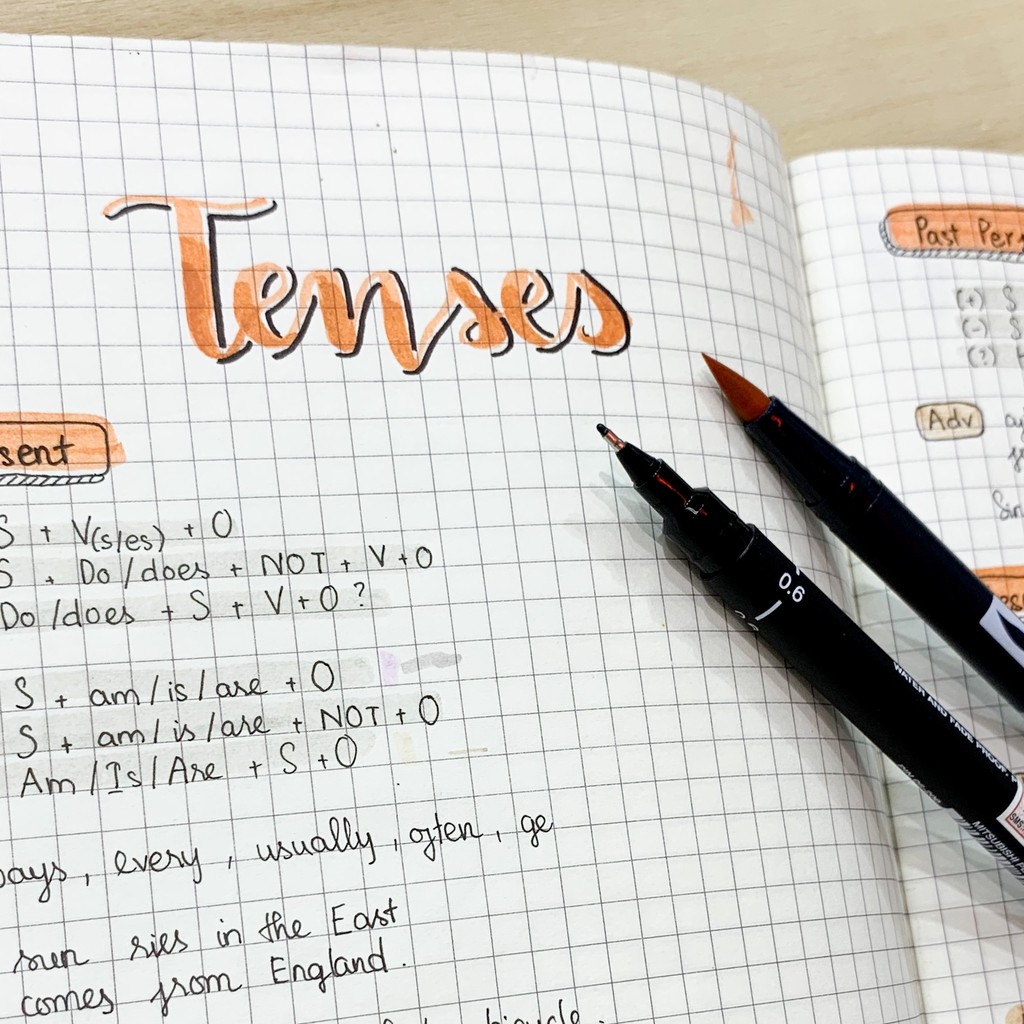 Tenses
sent
S + V(s/es) + O
S + Do/does + NOT + V + O
Do/does + S + V + O ?
S + am/is/are + O
S + am/is/are + NOT + O
Am/Is/Are + S + O
ays, every, usually, often, ge
sun ries in the East
comes from England.
bicycle.
Past Per
(+) S
(-) S
(?)
Adv
Sin
0.6
WATER AND FADE PROOF
MITSUBISHI